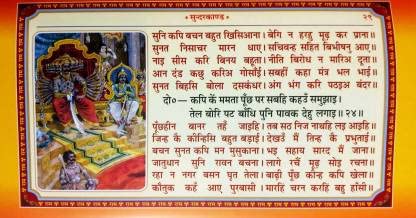 सुन्दरकाण्ड
२९
सुनि कपि बचन बहुत खिसिआना। बेगि न हरहु मूढ़ कर प्राना॥
सुनत निसाचर मारन धाए। सचिवन्ह सहित बिभीषनु आए॥
नाइ सीस करि बिनय बहूता। नीति बिरोध न मारिअ दूता॥
आन दंड कछु करिअ गोसाँई। सबहीं कहा मंत्र भल भाई॥
सुनत बिहसि बोला दसकंधर। अंग भंग करि पठइअ बंदर॥
दो०— कपि कें ममता पूँछ पर सबहि कहउँ समुझाइ।
तेल बोरि पट बाँधि पुनि पावक देहु लगाइ॥२४॥
पूँछहीन बानर तहँ जाइहि। तब सठ निज नाथहि लइ आइहि॥
जिन्ह कै कीन्हिसि बहुत बड़ाई। देखउँ मैं तिन्ह कै प्रभुताई॥
बचन सुनत कपि मन मुसुकाना। भइ सहाय सारद मैं जाना॥
जातुधान सुनि रावन बचना। लागे रचैं मूढ़ सोइ रचना॥
रहा न नगर बसन घृत तेला। बाढ़ी पूँछ कीन्ह कपि खेला॥
कौतुक कहँ आए पुरबासी। मारहिं चरन करहिं बहु हाँसी॥